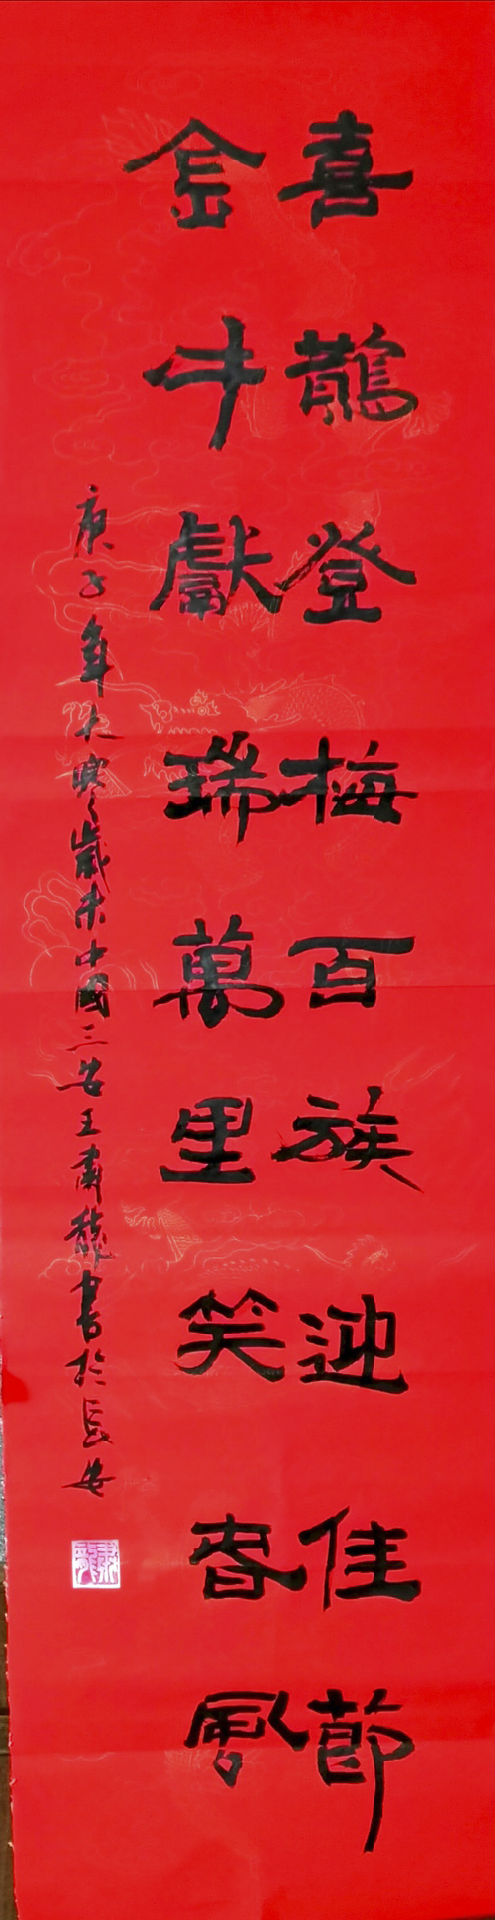 喜鵲登梅百族迎佳節
金牛獻瑞萬里笑春風
庚子年大寒歲末中國三安王肅龍書於長安